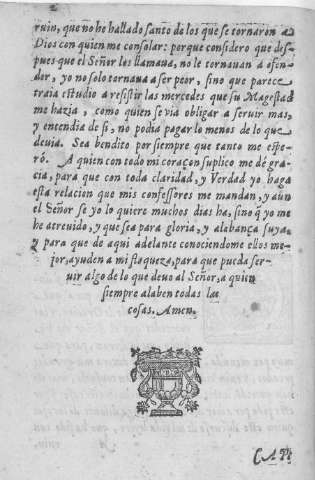 ruin, que no he hallado santo de los que se tornaron a
Dios con quien me consolar: porque considero que des-
pues que el Señor les llamaua, no le tornauan a ofen-
der, yo no solo tornaua a ser peor, sino que parece
traia estudio a resistir las mercedes que su Magestad
me hazia, como quien se via obligar a seruir mas,
y entendia de si, no podia pagar lo menos de lo que
deuia. Sea bendito por siempre que tanto me espe-
ró. A quien con todo mi coraçon suplico me dé gra-
cia, para que con toda claridad, y Verdad yo haga
esta relacion que mis confessores me mandan, y aun
el Señor se yo lo quiere muchos dias ha, sino q̃ yo no
he atreuido, y que sea para gloria, y alabança suya,
y para que de aqui adelante conociendome ellos me-
jor, ayuden a mi flaqueza, para que pueda ser-
uir algo de lo que deuo al Señor, a quien
siempre alaben todas las
cosas. Amen.